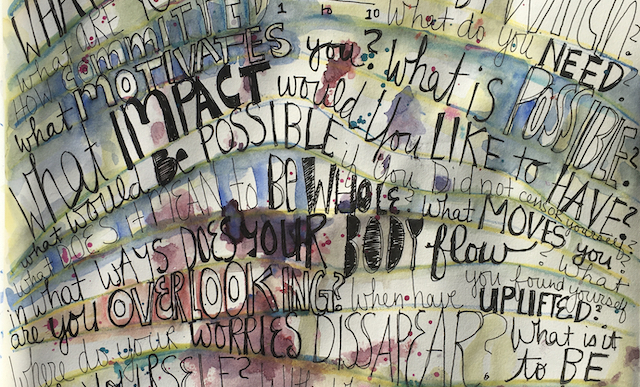 WHAT
What ARE
HOW COMMITTED 1 to 10 What do you NEED?
what MOTIVATES you? What is POSSIBLE?
What IMPACT would you LIKE to HAVE?
what would Be POSSIBLE if you did not censor yourself?
What DOES it MEAN to BE WHOLE? What MOVES you?
in what WAYS DOES YOUR BODY flow? What
are you OVERLOOKING? when have you found yourself UPLIFTED?
where do your WORRIES DISSAPEAR? What is it
YOURSELF? to BE